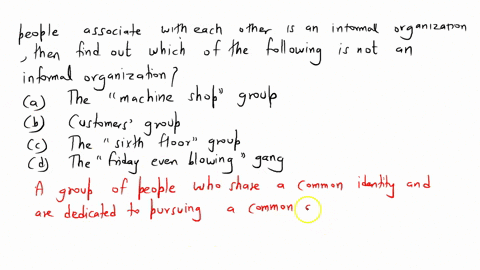 people associate with each other is an informal organization
, then find out which of the following is not an
informal organization?
(a) The "machine shop" group
(b) Customers' group
(c) The "sixth floor" group
(d) The "friday even blowing" gang
A group of people who share a common identity and
are dedicated to pursuing a common